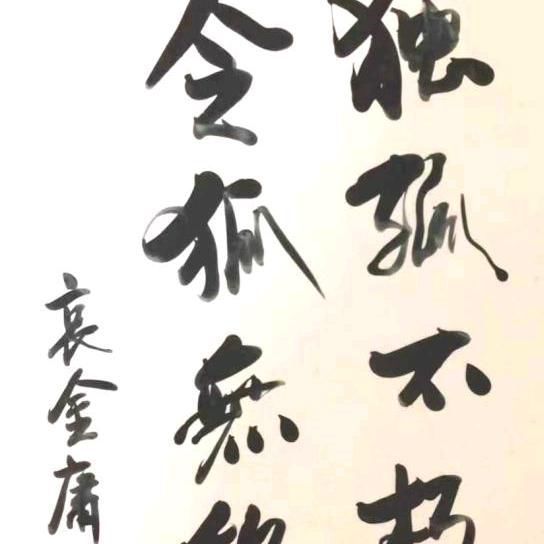 独孤不朽
令狐無
哀金庸